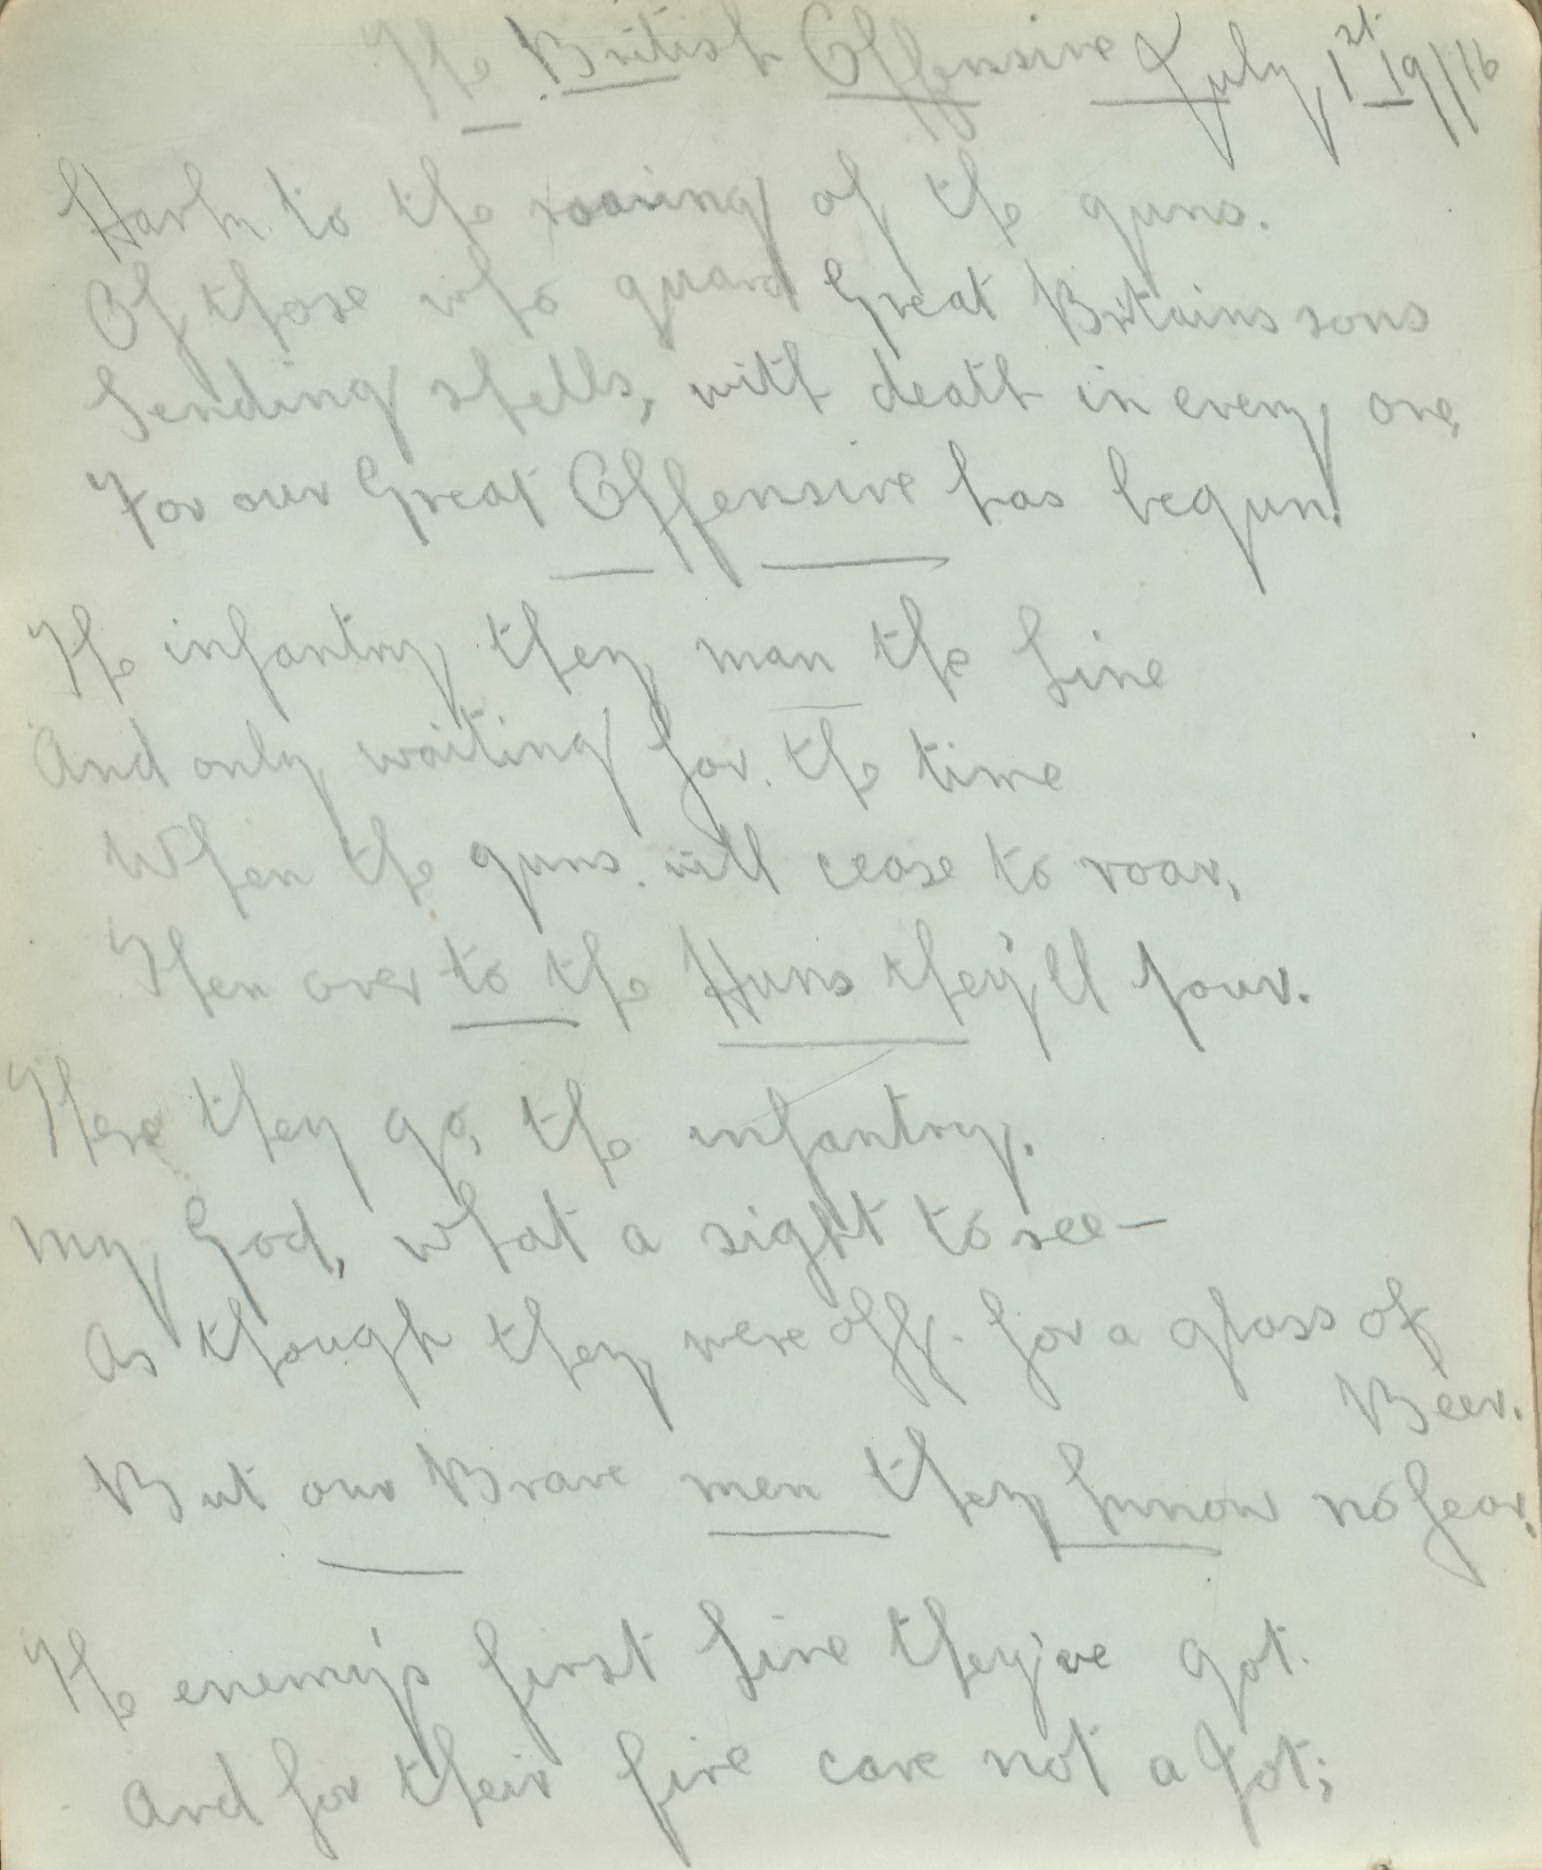 The British Offensive July, 1st 19/16
Hark to the roaring of the guns.
Of those who guard Great Britains sons
Sending shells, with death in every one,
For our Great Offensive has begun.
The infantry they man the line
And only waiting for the time
When the guns will cease to roar,
Then over to the Huns they'll pour.
Here they go, the infantry.
My God, what a sight to see —
As though they were off for a glass of
Beer.
But our Brave men they know no fear.
The enemy's first line they've got.
And for their fire care not a jot;